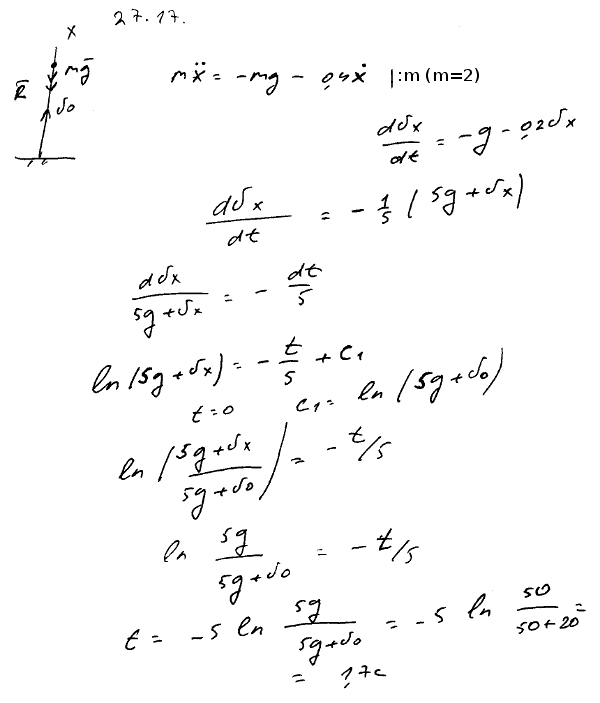 27.17.
x
mḡ
R̄
v̄₀
mẍ = -mg - 0,4ẋ |:m (m=2)
dvₓ/dt = -g - 0,2vₓ
dvₓ/dt = -1/5 (5g+vₓ)
dvₓ/(5g+vₓ) = - dt/5
ln(5g+vₓ) = - t/5 + C₁
t=0 C₁ = ln(5g+v₀)
ln((5g+vₓ)/(5g+v₀)) = -t/5
ln 5g/(5g+v₀) = -t/5
t = -5 ln 5g/(5g+v₀) = -5 ln 50/(50+20) =
= 1,7c